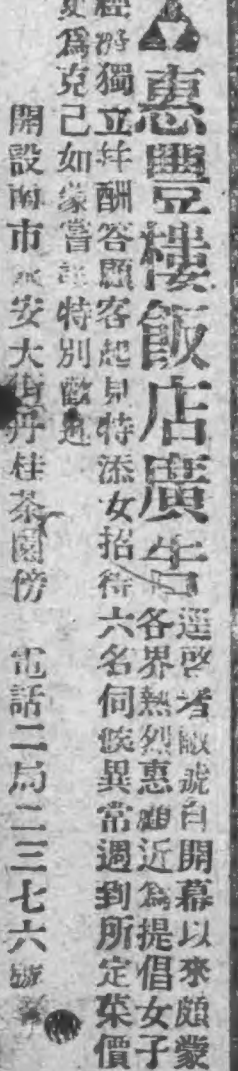 惠豐樓飯店廣告
逕啓者敝號自開幕以來頗蒙
各界熱烈惠顧近為提倡女子
經濟獨立幷酬答顧客起見特添女招待六名伺候異常週到所定菜價
更爲克己如蒙嘗試特別歡迎
開設南市永安大街丹桂茶園傍 電話二局二三七六號